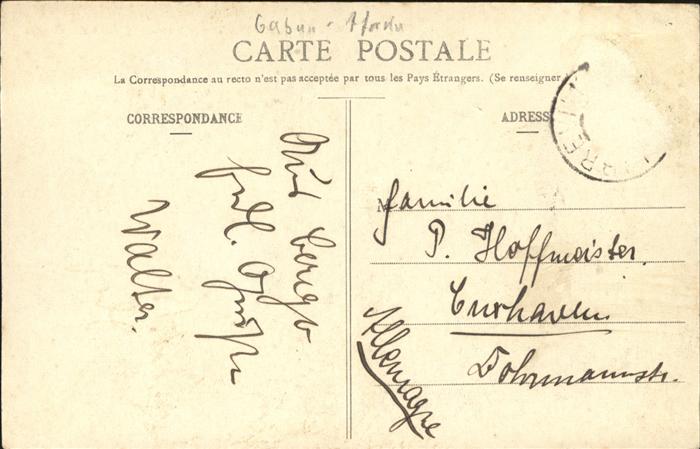 Gabun - 
CARTE POSTALE
La Correspondance au recto n'est pas acceptée par tous les Pays Étrangers. (Se renseigner
CORRESPONDANCE
frdl.
Walter.
ADRESS
Familie
P. Hoffmeister.
Cuxhaven.
Dohrmannstr.
Allemagne